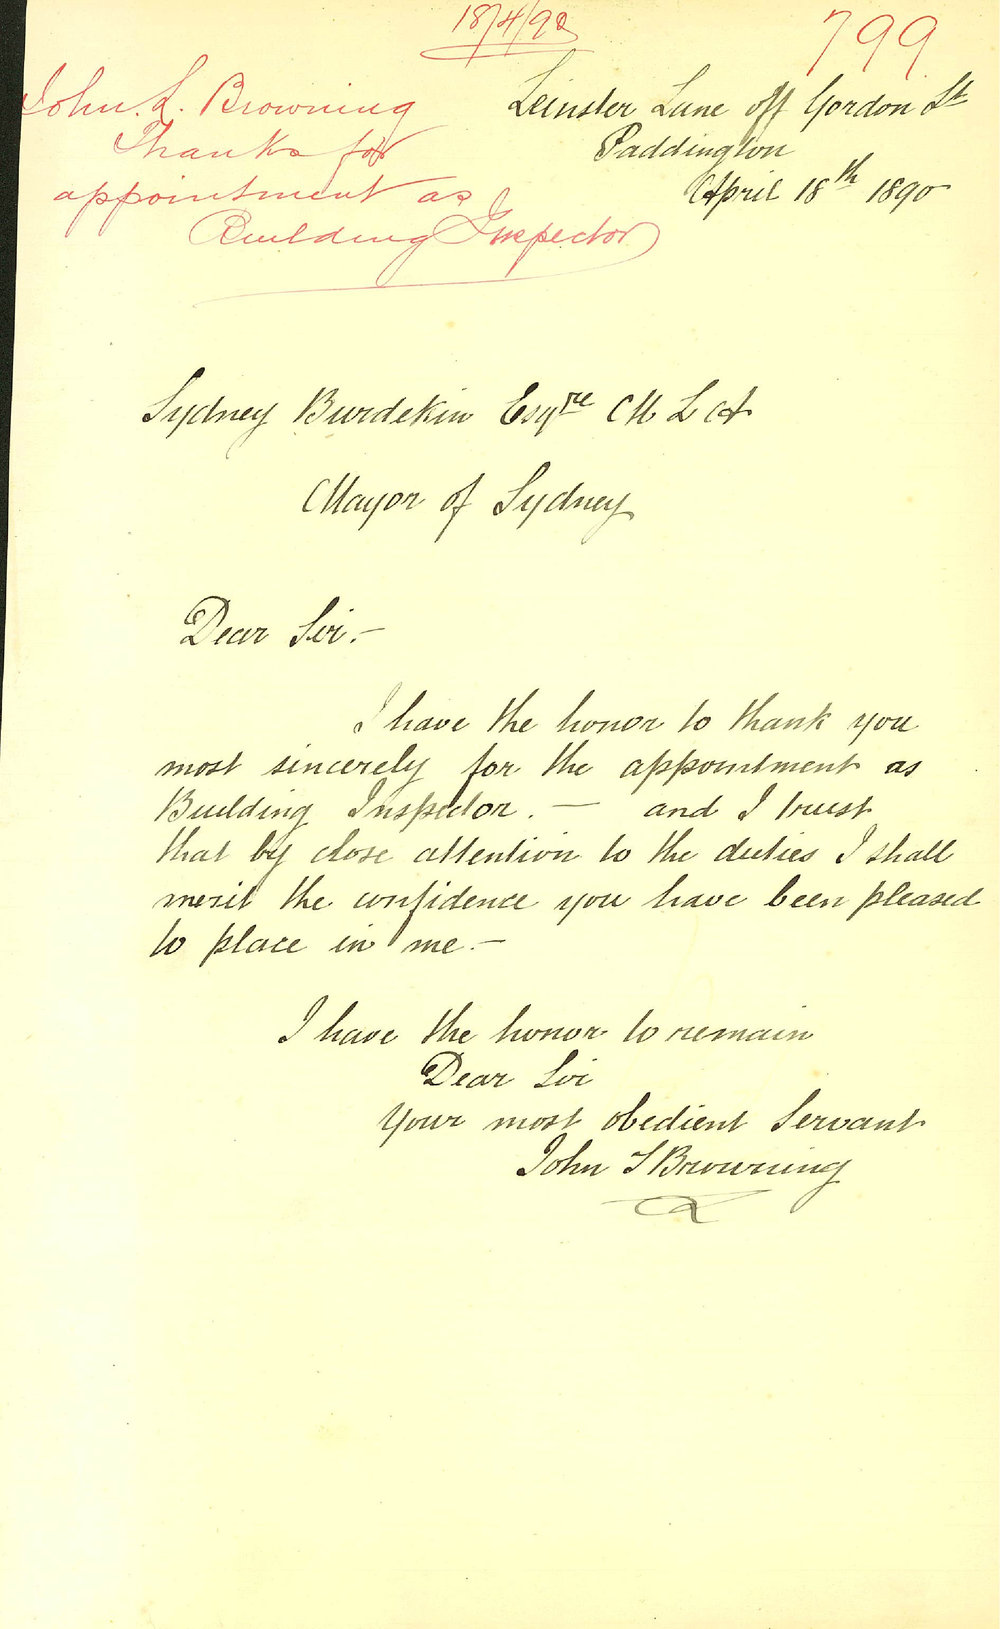 18/4/90
799
John. L. Browning
Thanks for
appointment as
Building Inspector
Leinster Lane off Gordon St
Paddington
April 18th 1890
Sydney Burdekin Esqre M L A
Mayor of Sydney
Dear Sir.—
I have the honor to thank you
most sincerely for the appointment as
Building Inspector. — and I trust
that by close attention to the duties I shall
merit the confidence you have been pleased
to place in me.—
I have the honor to remain
Dear Sir
Your most obedient Servant
John S Browning